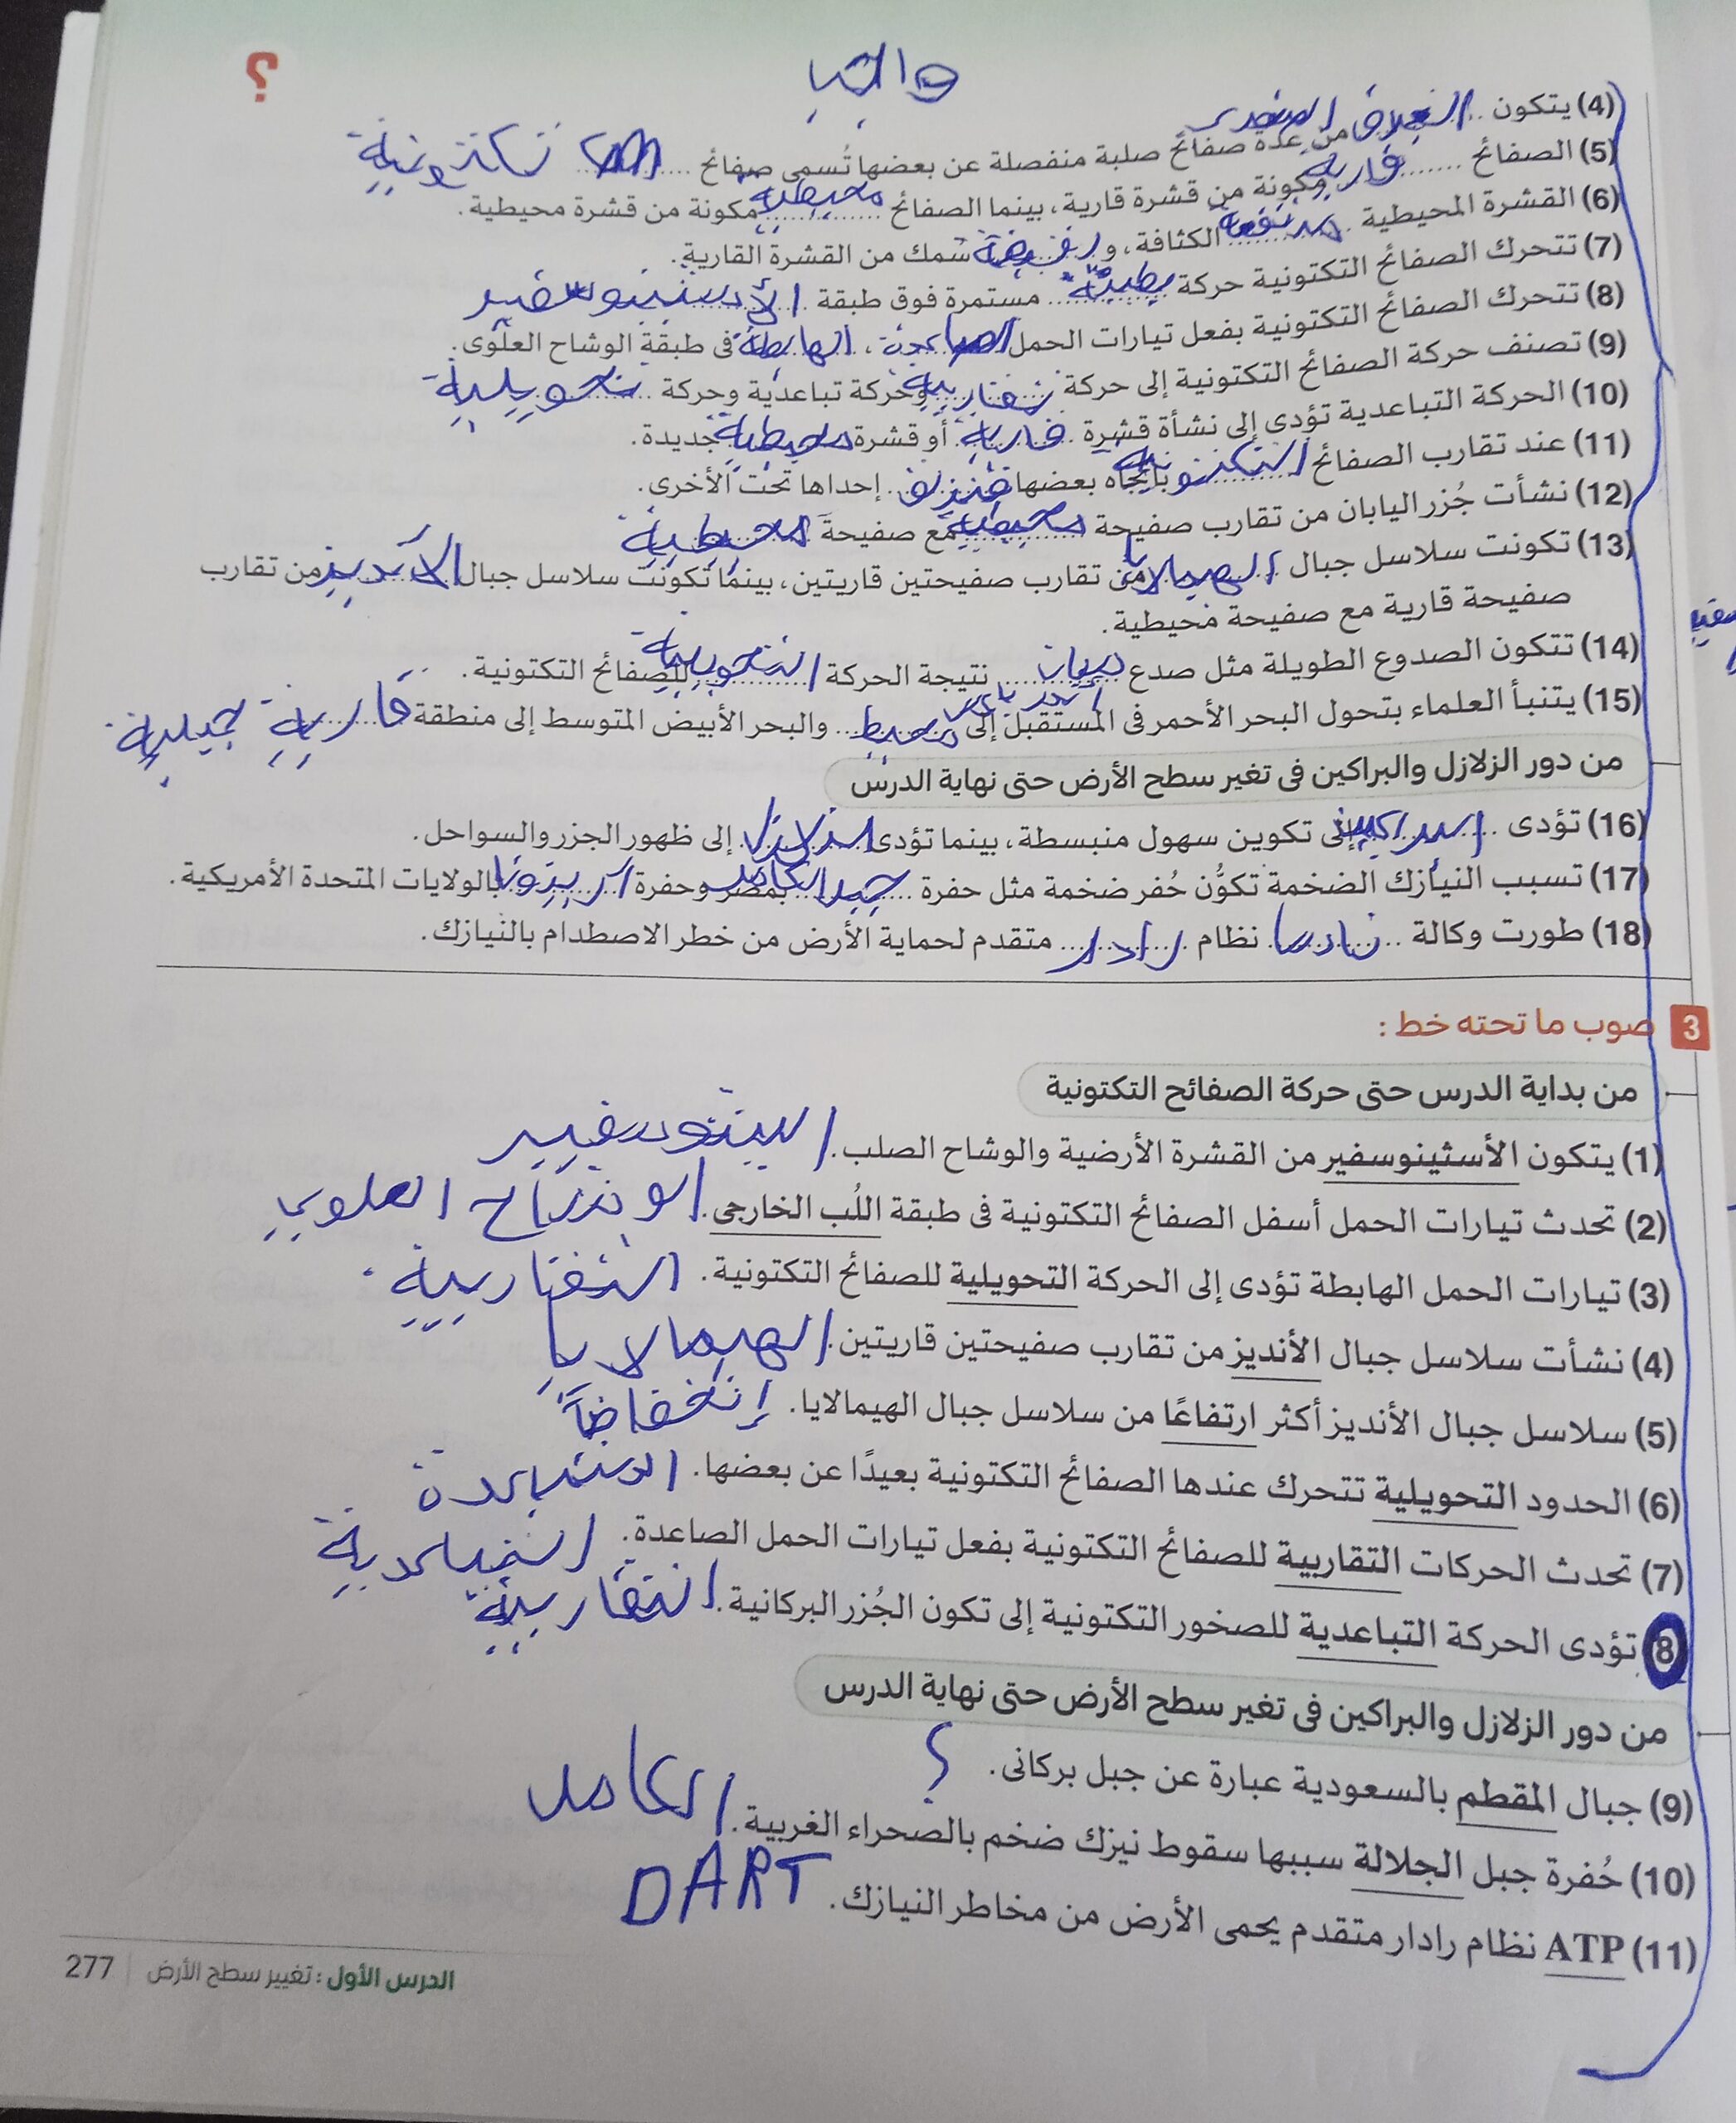 واجب
؟
(4) يتكون الغلاف الصخرى من عدة صفائح صلبة منفصلة عن بعضها تُسمى صفائح تكتونية
(5) الصفائح قارية مكونة من قشرة قارية، بينما الصفائح محيطية مكونة من قشرة محيطية.
(6) القشرة المحيطية مرتفعة الكثافة، و سُمك من القشرة القارية.
(7) تتحرك الصفائح التكتونية حركة بطيئة مستمرة فوق طبقة الأسثينوسفير
(8) تتحرك الصفائح التكتونية بفعل تيارات الحمل الصاعدة، الهابطة فى طبقة الوشاح العلوى.
(9) تصنف حركة الصفائح التكتونية إلى حركة تقاربية وحركة تباعدية وحركة تحويلية
(10) الحركة التباعدية تؤدى إلى نشأة قشرة قارية أو قشرة محيطية جديدة.
(11) عند تقارب الصفائح التكتونية باتجاه بعضها تنزلق إحداها تحت الأخرى.
(12) نشأت جُزر اليابان من تقارب صفيحة محيطية مع صفيحة محيطية
(13) تكونت سلاسل جبال الهيمالايا من تقارب صفيحتين قاريتين، بينما تكونت سلاسل جبال الأنديز من تقارب
صفيحة قارية مع صفيحة محيطية.
(14) تتكون الصدوع الطويلة مثل صدع سان أندرياس نتيجة الحركة التحويلية للصفائح التكتونية.
(15) يتنبأ العلماء بتحول البحر الأحمر فى المستقبل إلى محيط والبحر الأبيض المتوسط إلى منطقة قارية جبلية
من دور الزلازل والبراكين فى تغير سطح الأرض حتى نهاية الدرس
(16) تؤدى البراكين إلى تكوين سهول منبسطة، بينما تؤدى الزلازل إلى ظهور الجزر والسواحل.
(17) تسبب النيازك الضخمة تكوُّن حُفر ضخمة مثل حفرة جبل الكامل بمصر وحفرة أريزونا بالولايات المتحدة الأمريكية.
(18) طورت وكالة ناسا نظام رادار متقدم لحماية الأرض من خطر الاصطدام بالنيازك.
3 صوب ما تحته خط :
من بداية الدرس حتى حركة الصفائح التكتونية
(1) يتكون الأسثينوسفير من القشرة الأرضية والوشاح الصلب.
(2) تحدث تيارات الحمل أسفل الصفائح التكتونية فى طبقة اللُب الخارجى. الوشاح العلوي
(3) تيارات الحمل الهابطة تؤدى إلى الحركة التحويلية للصفائح التكتونية. التقاربية
(4) نشأت سلاسل جبال الأنديز من تقارب صفيحتين قاريتين. الهيمالايا
(5) سلاسل جبال الأنديز أكثر ارتفاعًا من سلاسل جبال الهيمالايا. إنخفاضاً
(6) الحدود التحويلية تتحرك عندها الصفائح التكتونية بعيدًا عن بعضها.
(7) تحدث الحركات التقاربية للصفائح التكتونية بفعل تيارات الحمل الصاعدة. التباعدية
(8) تؤدى الحركة التباعدية للصخور التكتونية إلى تكون الجُزر البركانية. التقاربية
من دور الزلازل والبراكين فى تغير سطح الأرض حتى نهاية الدرس
(9) جبال المقطم بالسعودية عبارة عن جبل بركانى. ؟
(10) حُفرة جبل الجلالة سببها سقوط نيزك ضخم بالصحراء الغربية. الكامل
(11) ATP نظام رادار متقدم يحمى الأرض من مخاطر النيازك. DART
الدرس الأول : تغيير سطح الأرض | 277